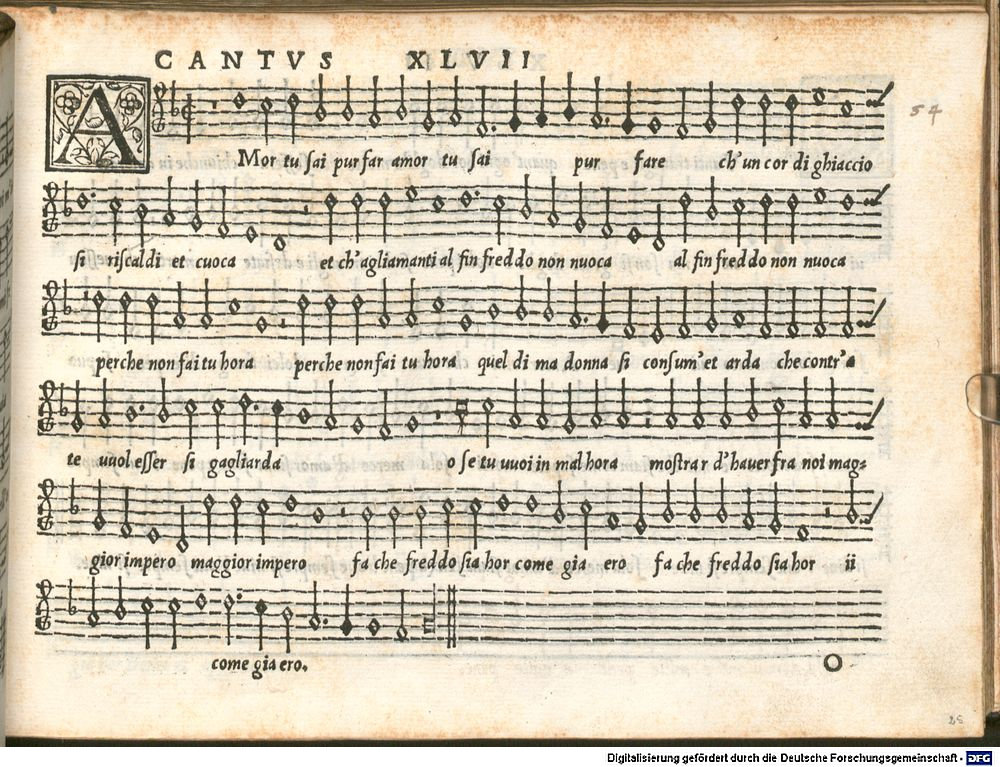 CANTVS XLVII
54
A
Mor tu sai pur far amor tu sai pur fare ch'un cor di ghiaccio
si riscaldi et cuoca et ch'agliamanti al fin freddo non nuoca al fin freddo non nuoca
perche non fai tu hora perche non fai tu hora quel di ma donna si consum'et arda che contr'a
te uuol esser si gagliarda o se tu uuoi in mal hora mostrar d'hauer fra noi mag=
gior impero maggior impero fa che freddo sia hor come gia ero fa che freddo sia hor ii
come gia ero.
O
Digitalisierung gefördert durch die Deutsche Forschungsgemeinschaft - DFG